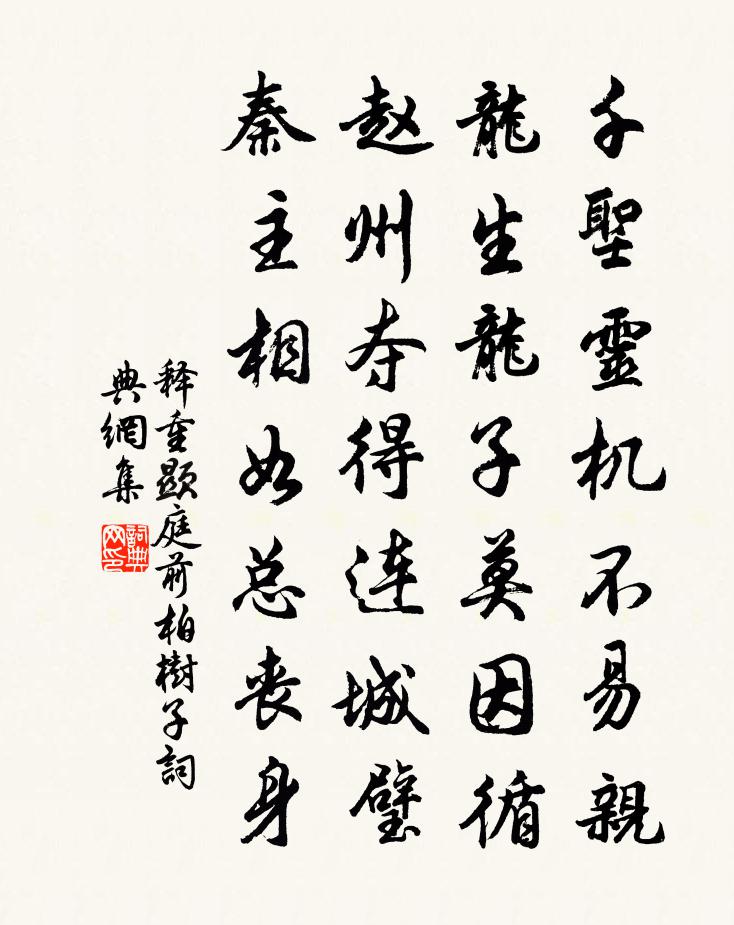 千聖靈机不易親
龍生龍子莫因循
赵州夺得連城璧
秦主相如总丧身
释重顯庭前柏樹子詞
典網集
詞典
网印